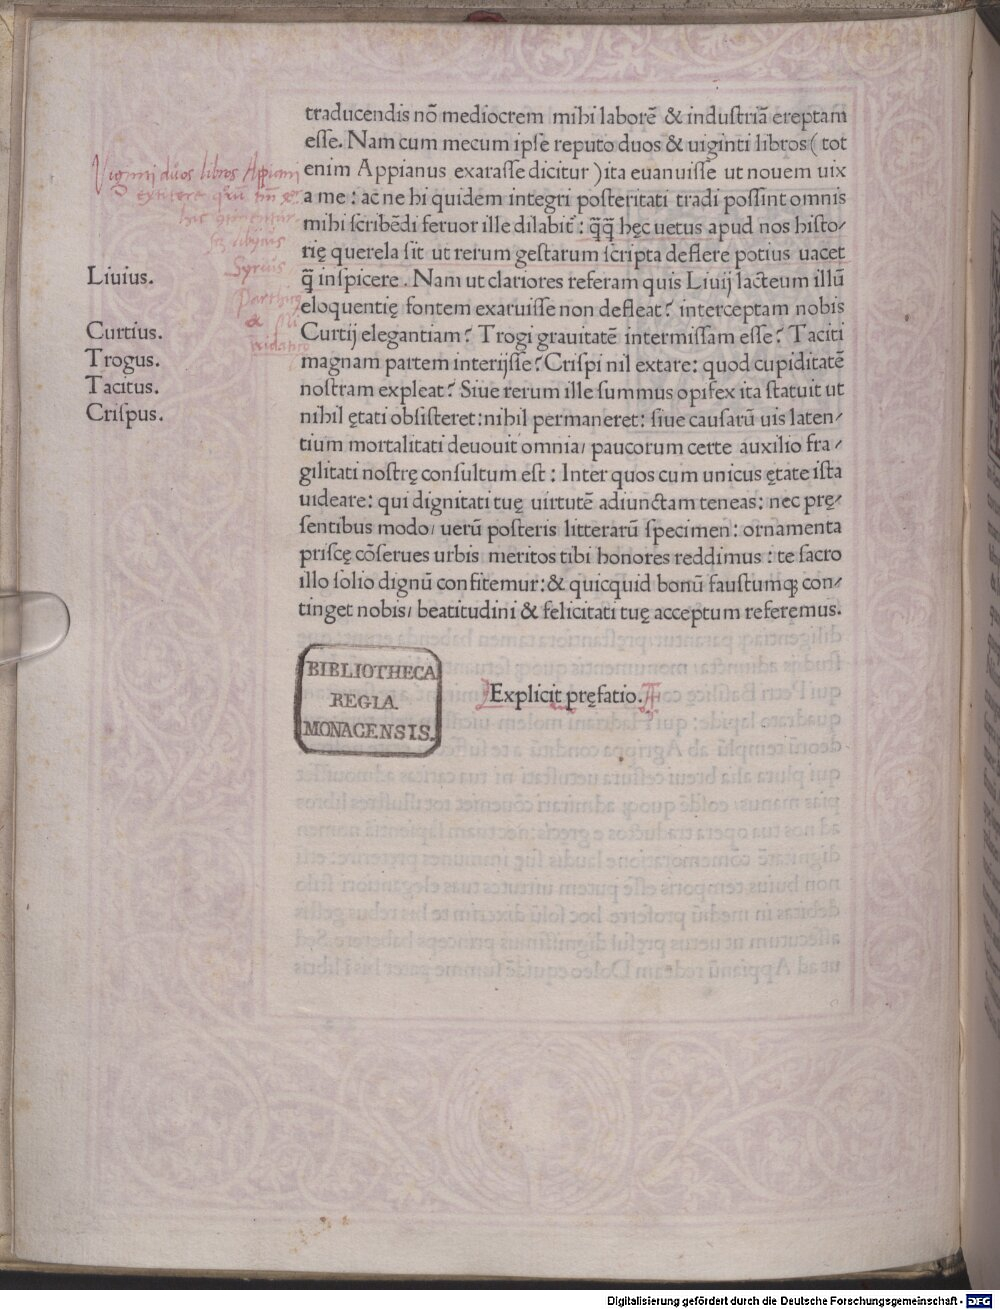 traducendis nō mediocrem mihi laborē & industriā ereptam
esse. Nam cum mecum ipse reputo duos & uiginti libros (tot
enim Appianus exarasse dicitur) ita euanuisse ut nouem uix
a me: ac ne hi quidem integri posteritati tradi possint omnis
mihi scribēdi feruor ille dilabit᷑: q̄q̄ hęc uetus apud nos histo/
rię querela sit ut rerum gestarum scripta deflere potius uacet
q̄ inspicere. Nam ut clariores referam quis Liuij lacteum illū
eloquentię fontem exaruisse non defleat? interceptam nobis
Curtij elegantiam? Trogi grauitatē intermissam esse? Taciti
magnam partem interijsse? Crispi nil extare: quod cupiditatē
nostram expleat? Siue rerum ille summus opifex ita statuit ut
nihil ętati obsisteret: nihil permaneret: siue causarū uis laten/
tium mortalitati deuouit omnia/ paucorum certe auxilio fra/
gilitati nostrę consultum est: Inter quos cum unicus ętate ista
uideare: qui dignitati tuę uirtutē adiunctam teneas: nec prę/
sentibus modo/ uerū posteris litterarū specimen: ornamenta
priscę cōserues urbis meritos tibi honores reddimus: te sacro
illo solio dignū confitemur: & quicquid bonū faustumq; con/
tinget nobis/ beatitudini & felicitati tuę acceptum referemus.
Explicit pręfatio.
Liuius.
Curtius.
Trogus.
Tacitus.
Crispus.
Viginti duos libros Appiani
extitere
hic
libycus
Syrius
Parthicus
&
BIBLIOTHECA
REGIA
MONACENSIS.
Digitalisierung gefördert durch die Deutsche Forschungsgemeinschaft - DFG